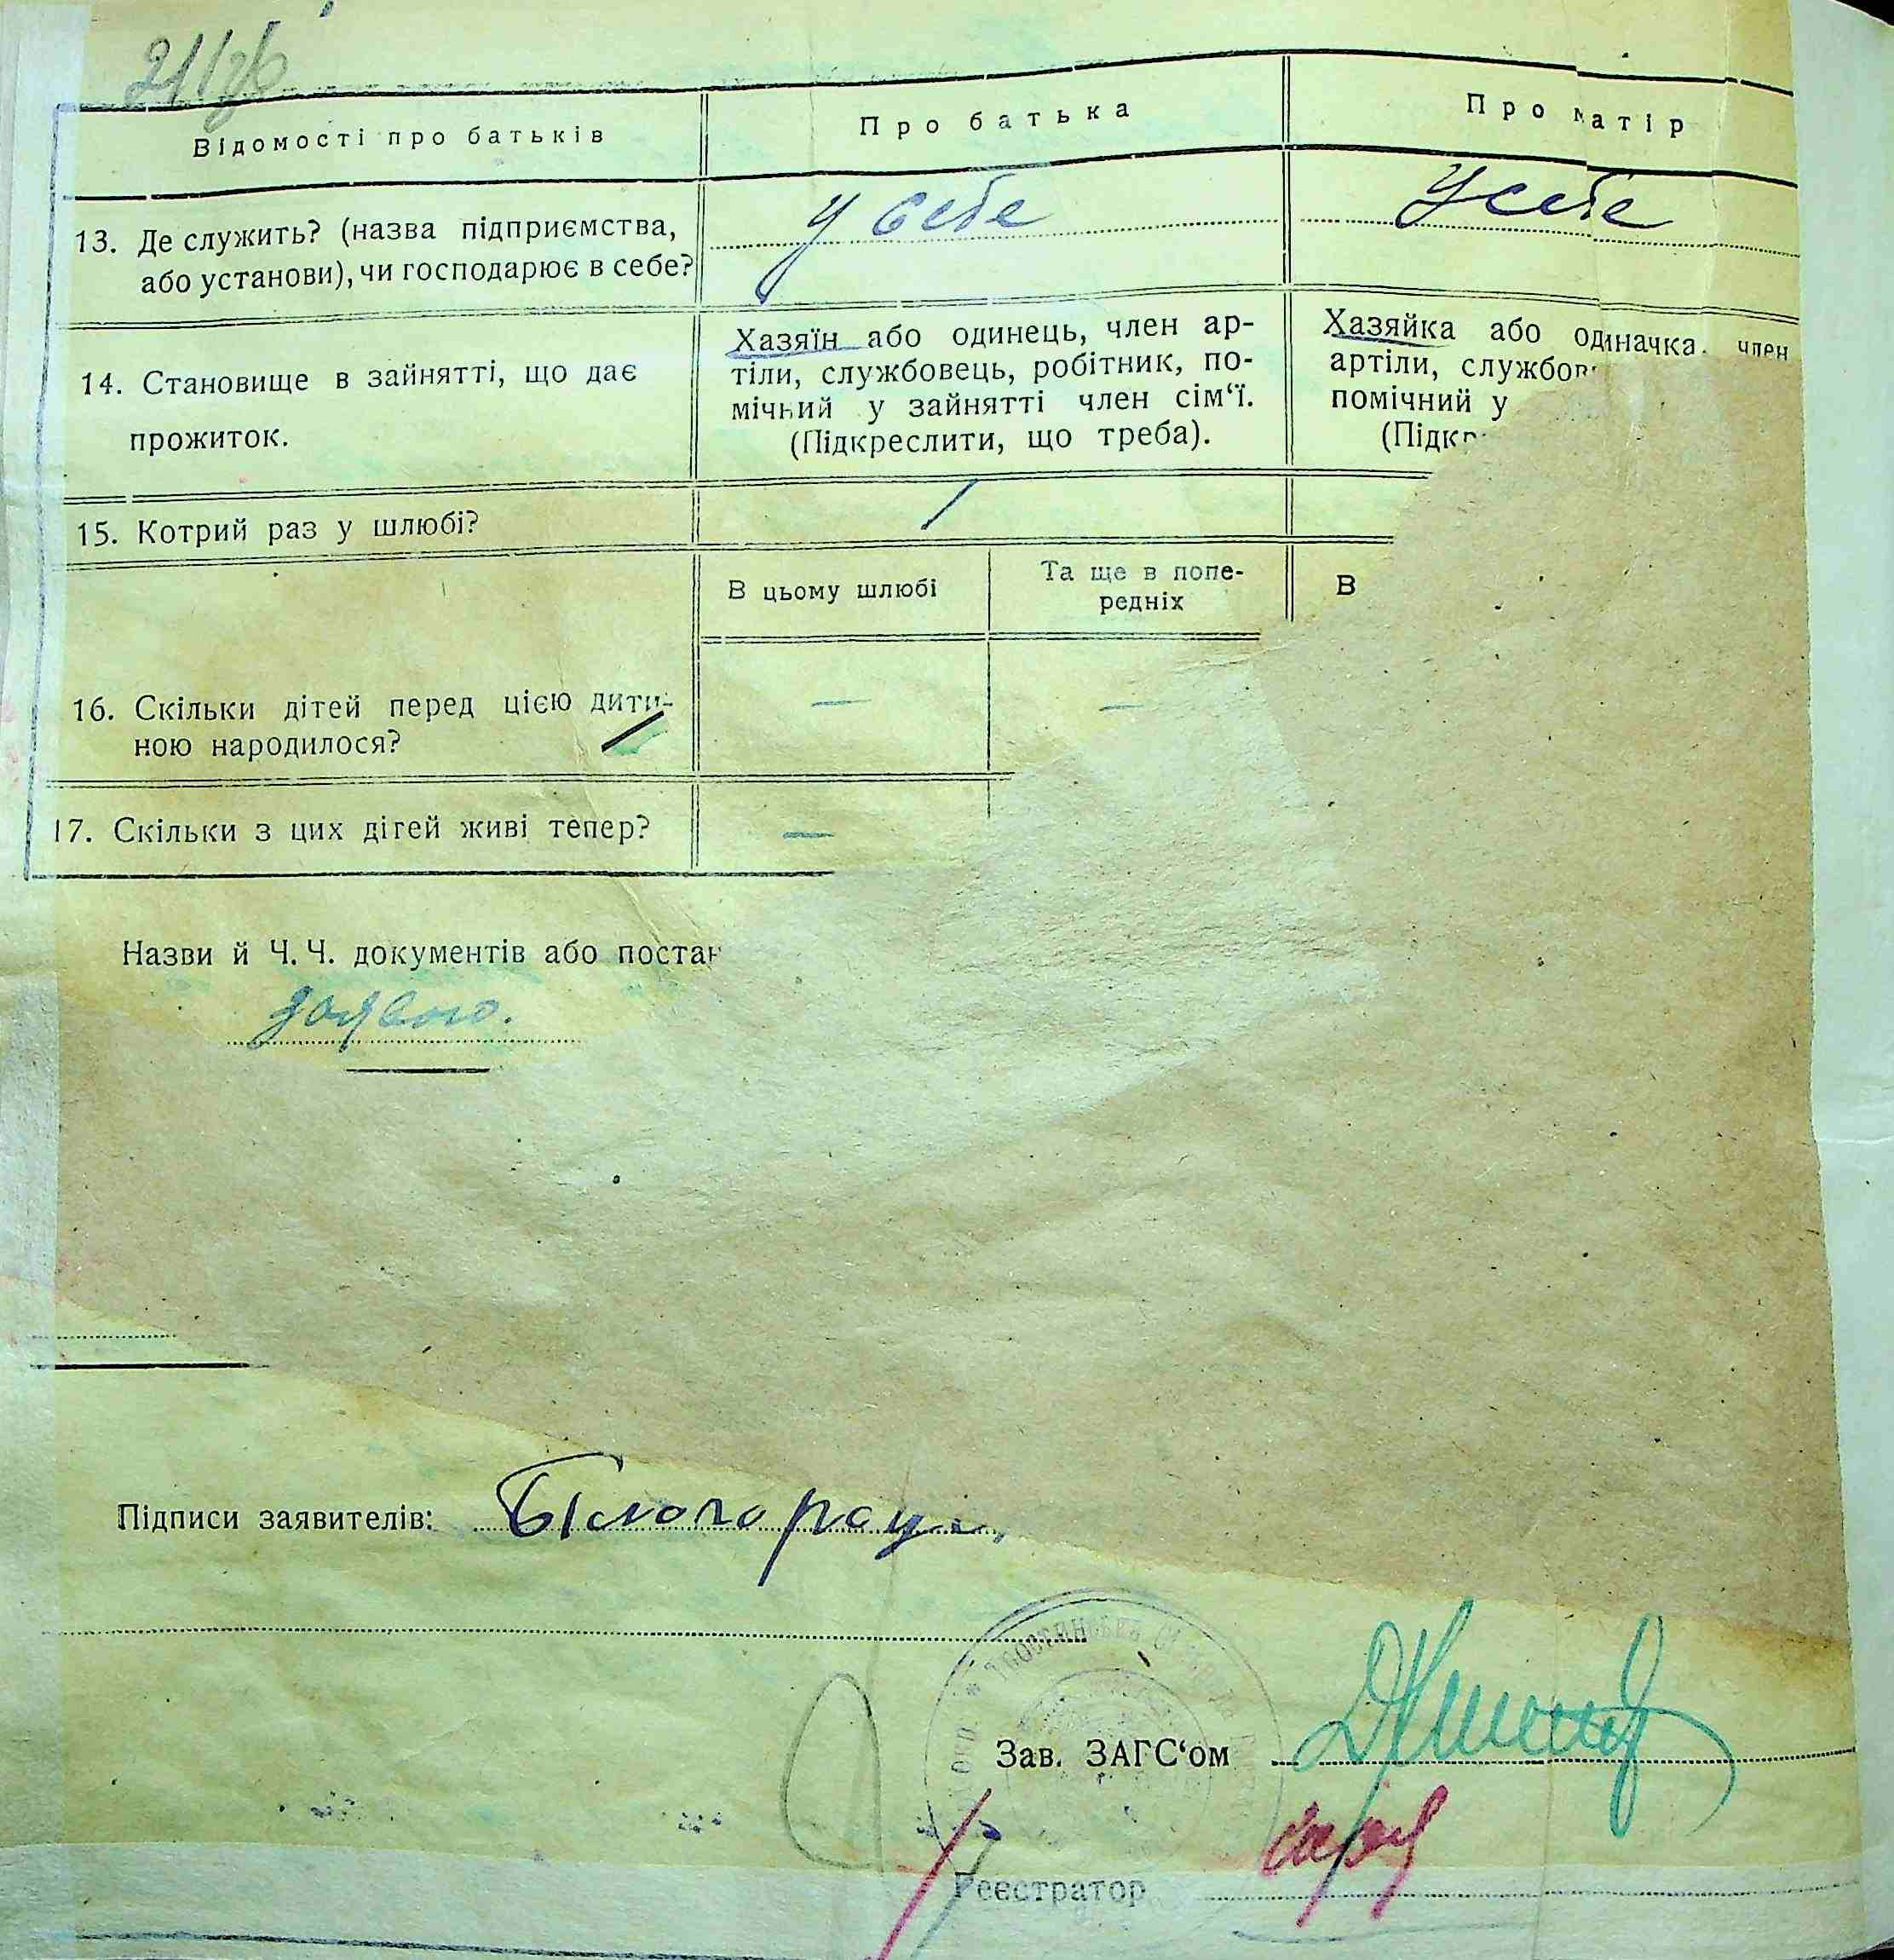 Відомості про батьків
Про батька
Про матір
13. Де служить? (назва підприємства,
або установи), чи господарює в себе?
у себе
у себе
14. Становище в зайнятті, що дає
прожиток.
Хазяїн або одинець, член ар-
тіли, службовець, робітник, по-
мічний у зайнятті член сім‘ї.
(Підкреслити, що треба).
Хазяйка або одиначка, член
артіли, службов
помічний у
(Підкр
15. Котрий раз у шлюбі?
В цьому шлюбі
Та ще в попе-
редніх
В
16. Скільки дітей перед цією дити-
ною народилося?
—
—
17. Скільки з цих дітей живі тепер?
—
Назви й Ч. Ч. документів або постан
заявою.
Підписи заявителів:
Зав. ЗАГС‘ом
Реєстратор